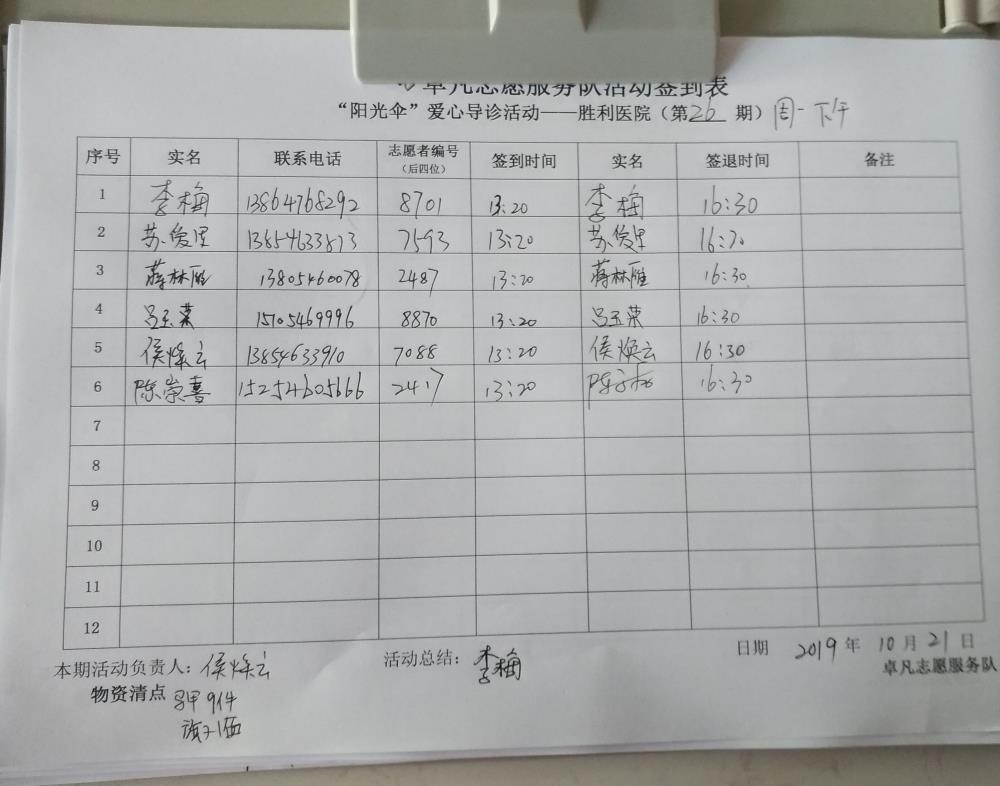 卓凡志愿服务队活动签到表
“阳光伞”爱心导诊活动——胜利医院（第26期）周一下午
序号 实名 联系电话 志愿者编号（后四位） 签到时间 实名 签退时间 备注
1 李梅 13864768292 8701 13:20 李梅 16:30
2 苏俊里 13854633813 7593 13:20 苏俊里 16:30
3 蒋林雁 13805460078 2487 13:20 蒋林雁 16:30
4 吕玉荣 15105469996 8870 13:20 吕玉荣 16:30
5 侯焕云 13854633910 7088 13:20 侯焕云 16:30
6 陈崇喜 15254605666 2417 13:20 16:30
7
8
9
10
11
12
本期活动负责人：侯焕云 活动总结：李梅 日期 2019年10月21日
物资清点 马甲9件 卓凡志愿服务队
旗子1面